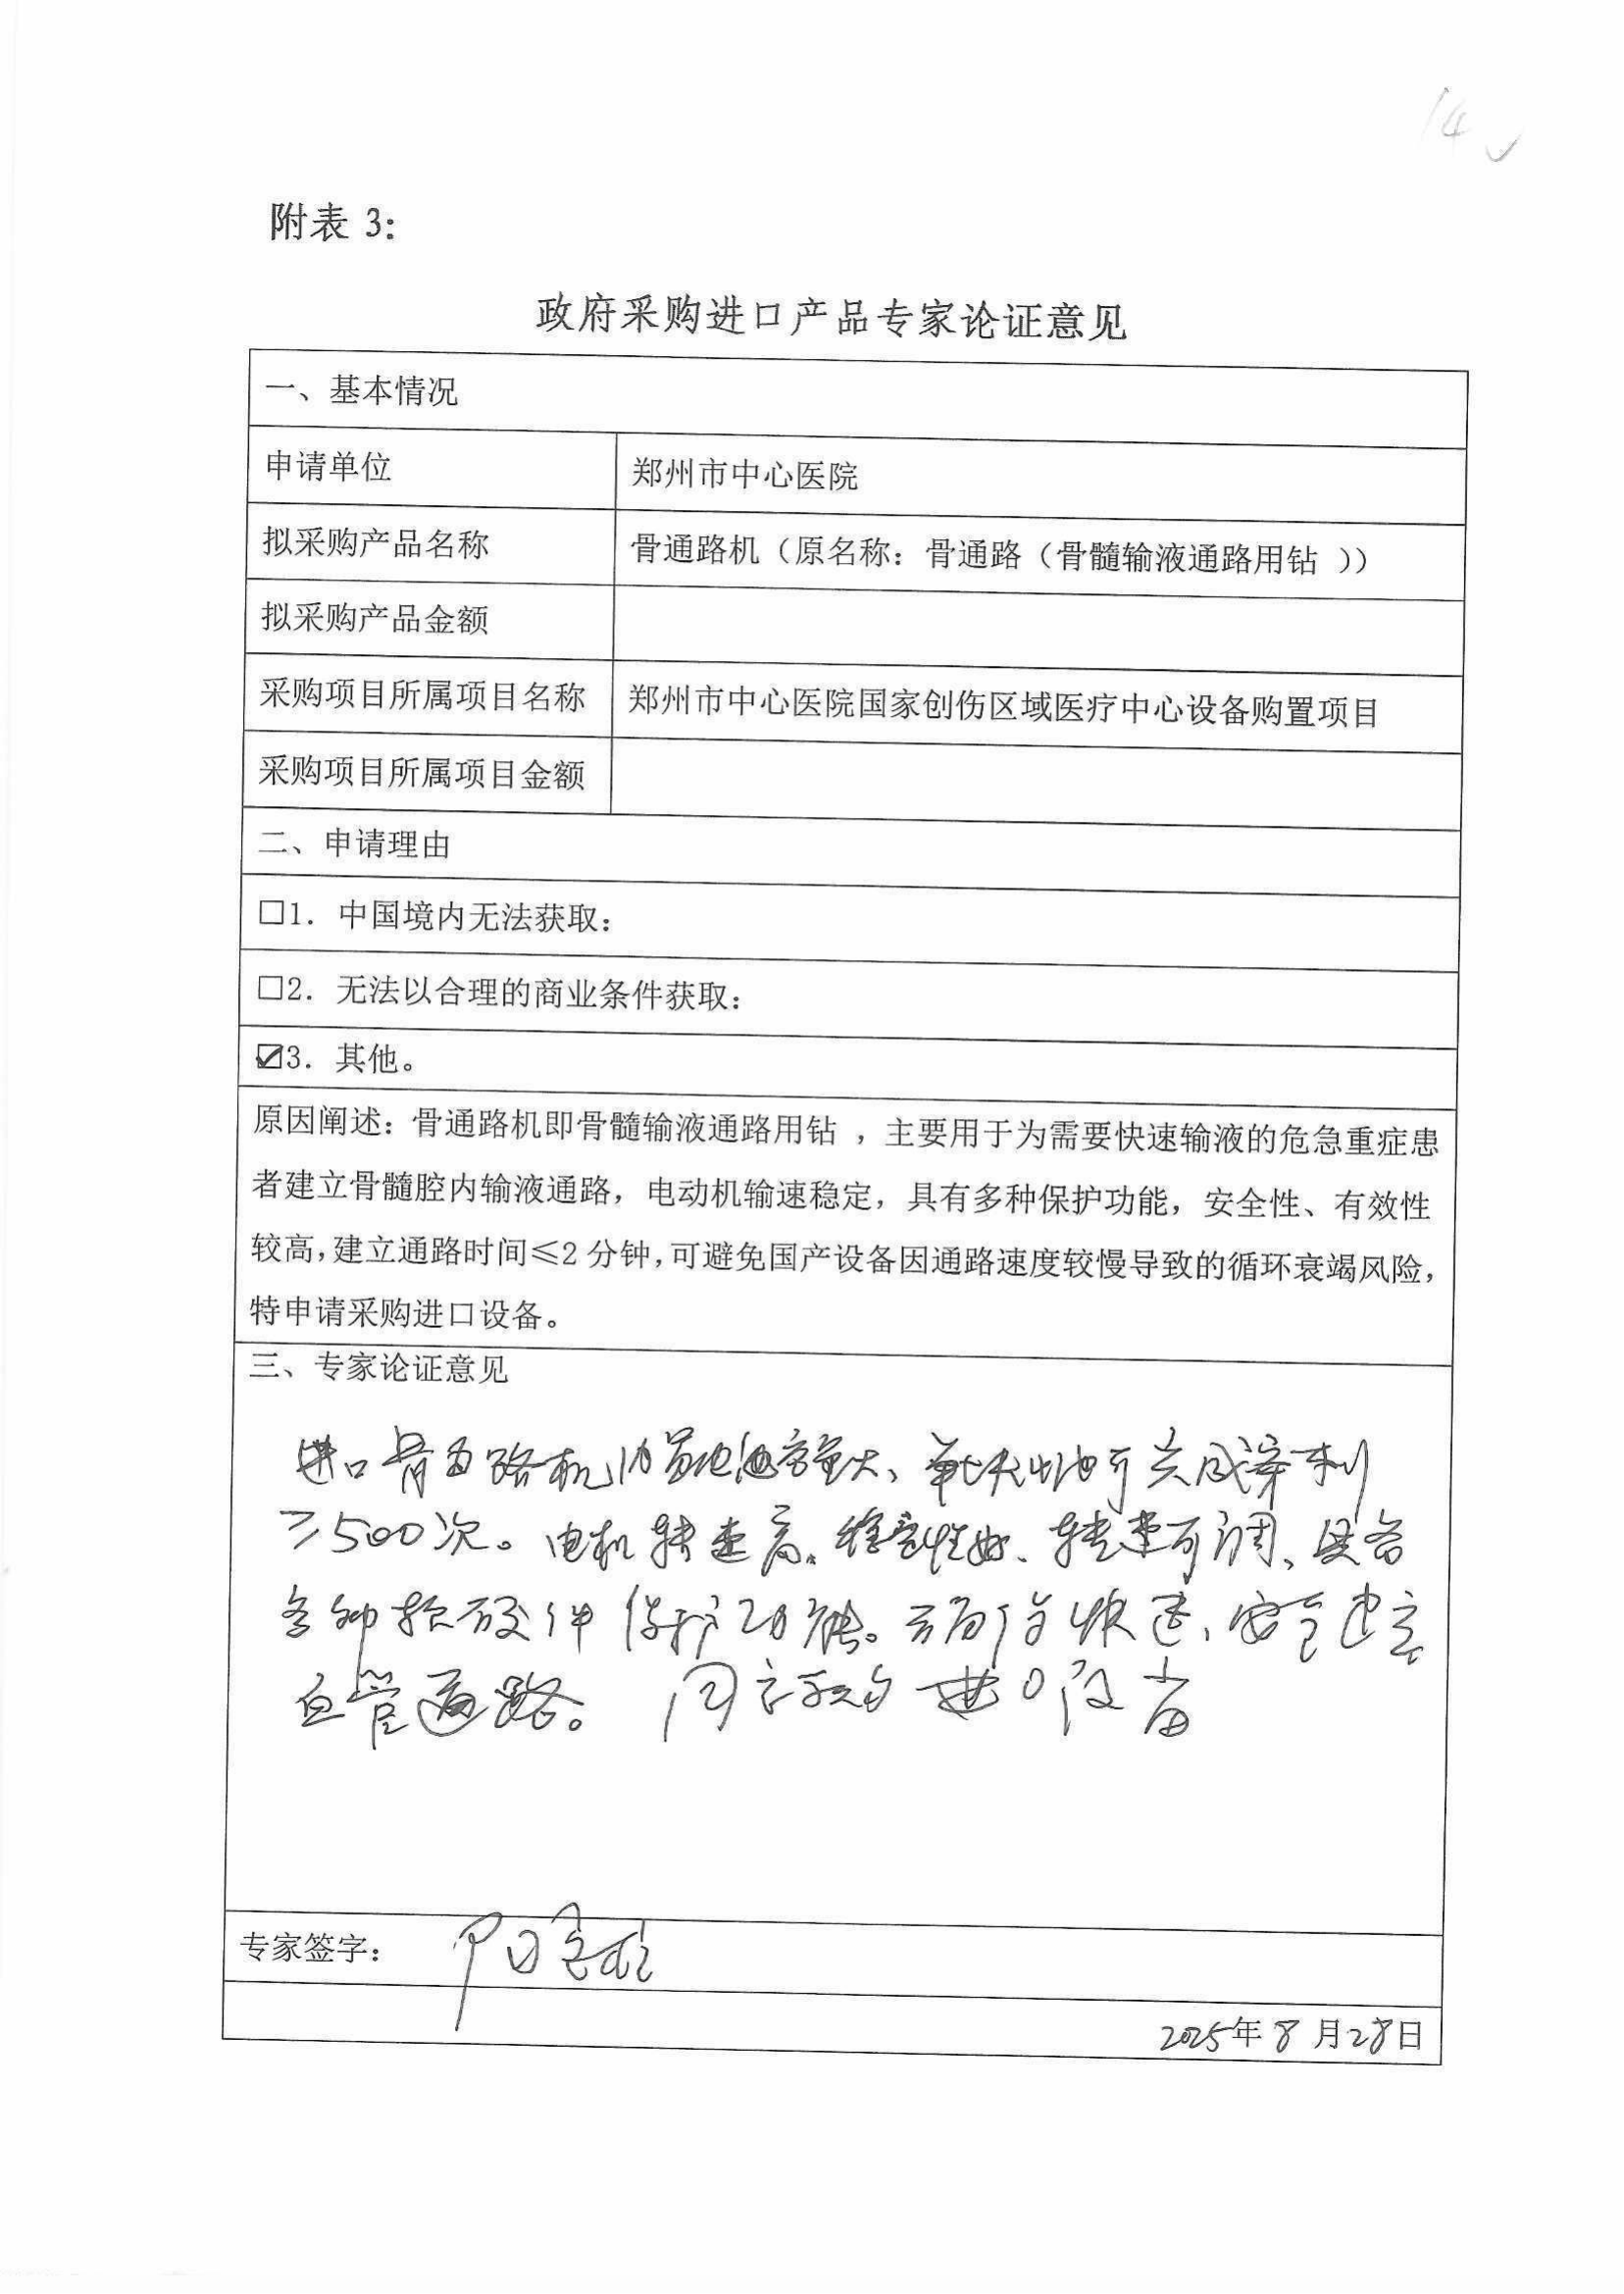 14
附表 3:
政府采购进口产品专家论证意见
一、基本情况
申请单位 郑州市中心医院
拟采购产品名称 骨通路机（原名称：骨通路（骨髓输液通路用钻 ））
拟采购产品金额
采购项目所属项目名称 郑州市中心医院国家创伤区域医疗中心设备购置项目
采购项目所属项目金额
二、申请理由
□1. 中国境内无法获取：
□2. 无法以合理的商业条件获取：
☑3. 其他。
原因阐述：骨通路机即骨髓输液通路用钻 ，主要用于为需要快速输液的危急重症患
者建立骨髓腔内输液通路，电动机输速稳定，具有多种保护功能，安全性、有效性
较高，建立通路时间≤2 分钟，可避免国产设备因通路速度较慢导致的循环衰竭风险，
特申请采购进口设备。
三、专家论证意见
进口骨通路机 电池容量大、电池可完成穿刺
≥500次。电机转速高、稳定性好、转速可调、具备
多种软硬件保护功能。快速、安全建立
血管通路。同意 进口设备
专家签字：
2025年8月28日